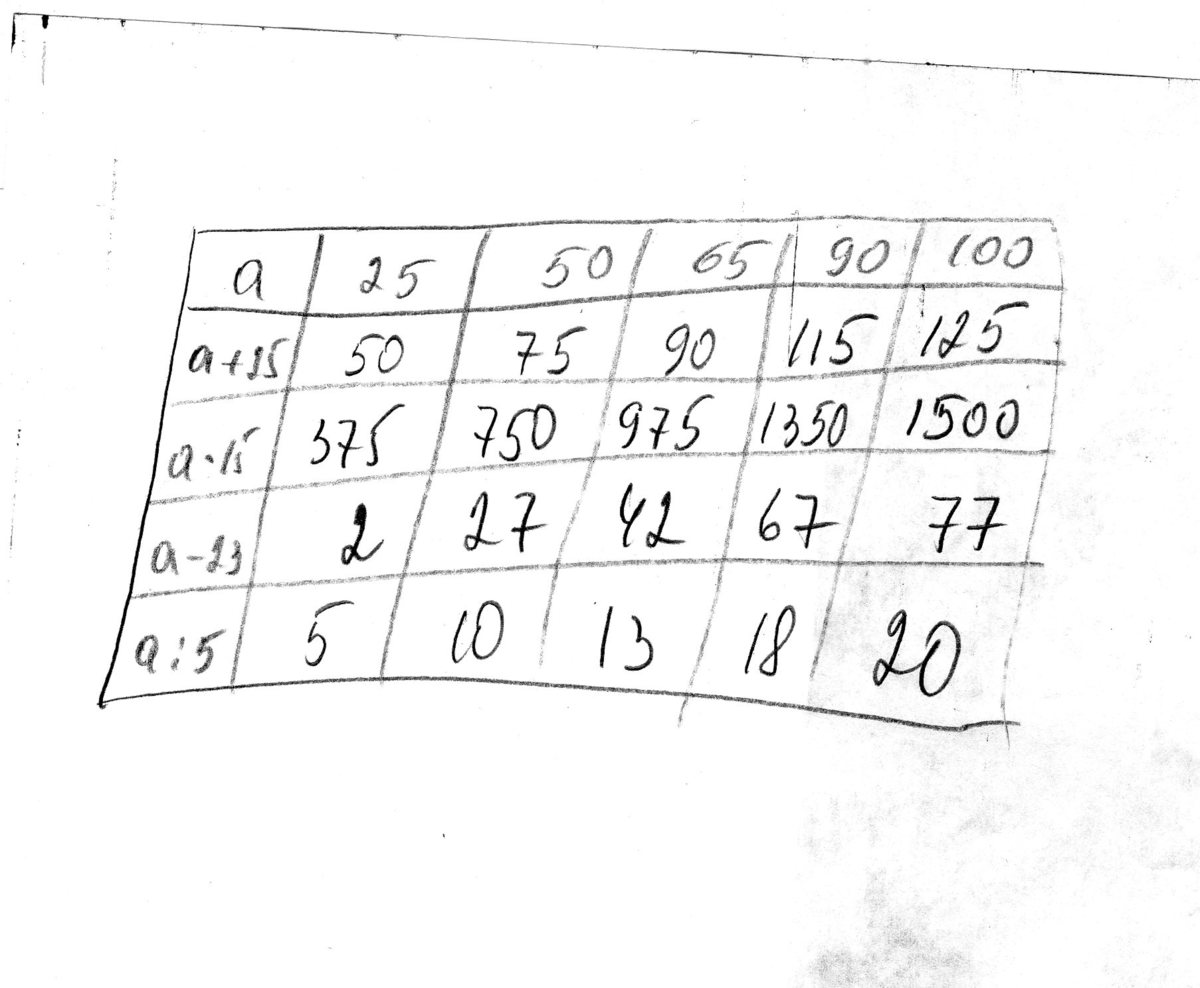 a 25 50 65 90 100
a+25 50 75 90 115 125
a·15 375 750 975 1350 1500
a-23 2 27 42 67 77
a:5 5 10 13 18 20